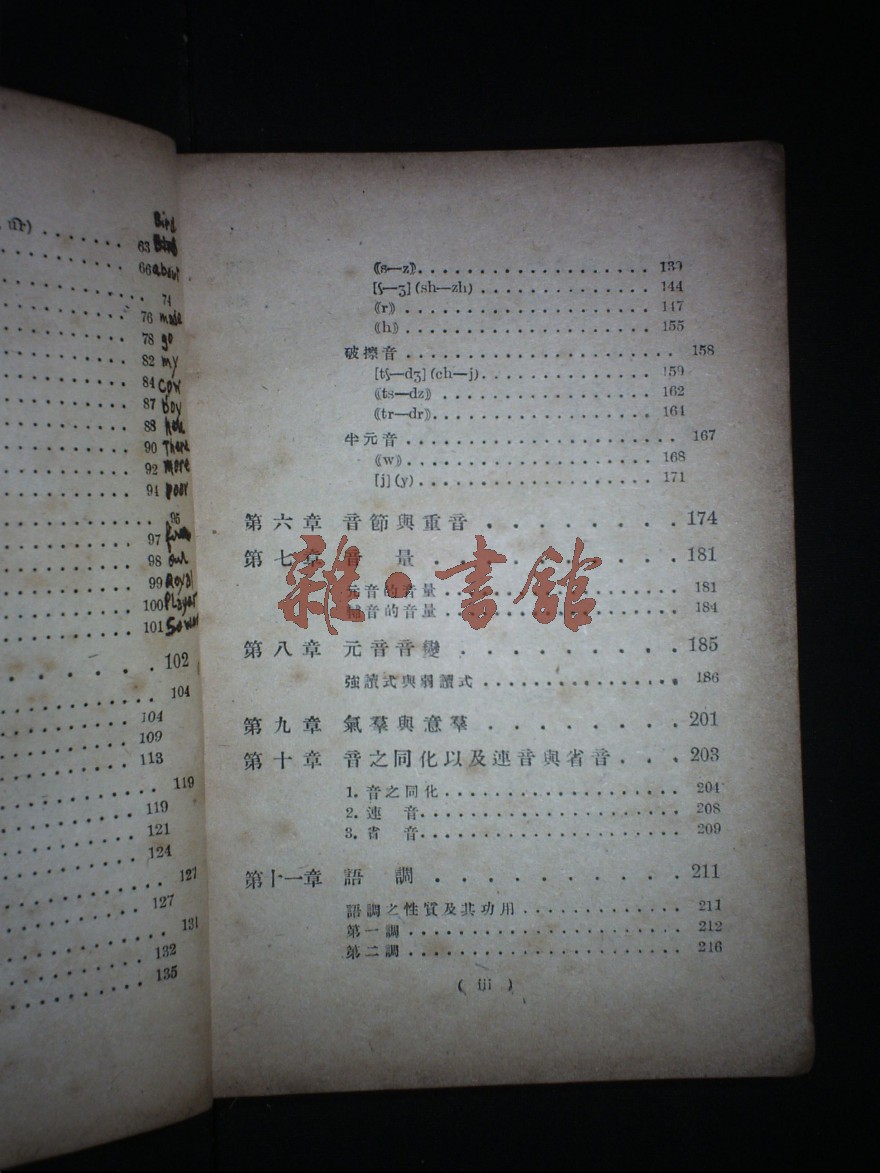 63 Bird
66 about
74
76 made
78 go
82 my
84 cow
87 boy
88
90 There
92 more
94 poor
95
97
98 our
99 Royal
100 Player
101
102
104
104
109
113
119
119
121
124
127
127
131
132
135
⟪s—z⟫ 139
[ʃ—ʒ] (sh—zh) 144
⟪r⟫ 147
⟪h⟫ 155
破擦音 158
[tʃ—dʒ] (ch—j) 159
⟪ts—dz⟫ 162
⟪tr—dr⟫ 164
半元音 167
⟪w⟫ 168
[j] (y) 171
第六章 音節與重音 174
第七章 音量 181
元音的音量 181
輔音的音量 184
雜·書館
第八章 元音音變 185
強讀式與弱讀式 186
第九章 氣羣與意羣 201
第十章 音之同化以及連音與省音 203
1. 音之同化 204
2. 連音 208
3. 省音 209
第十一章 語調 211
語調之性質及其功用 211
第一調 212
第二調 216
( iii )